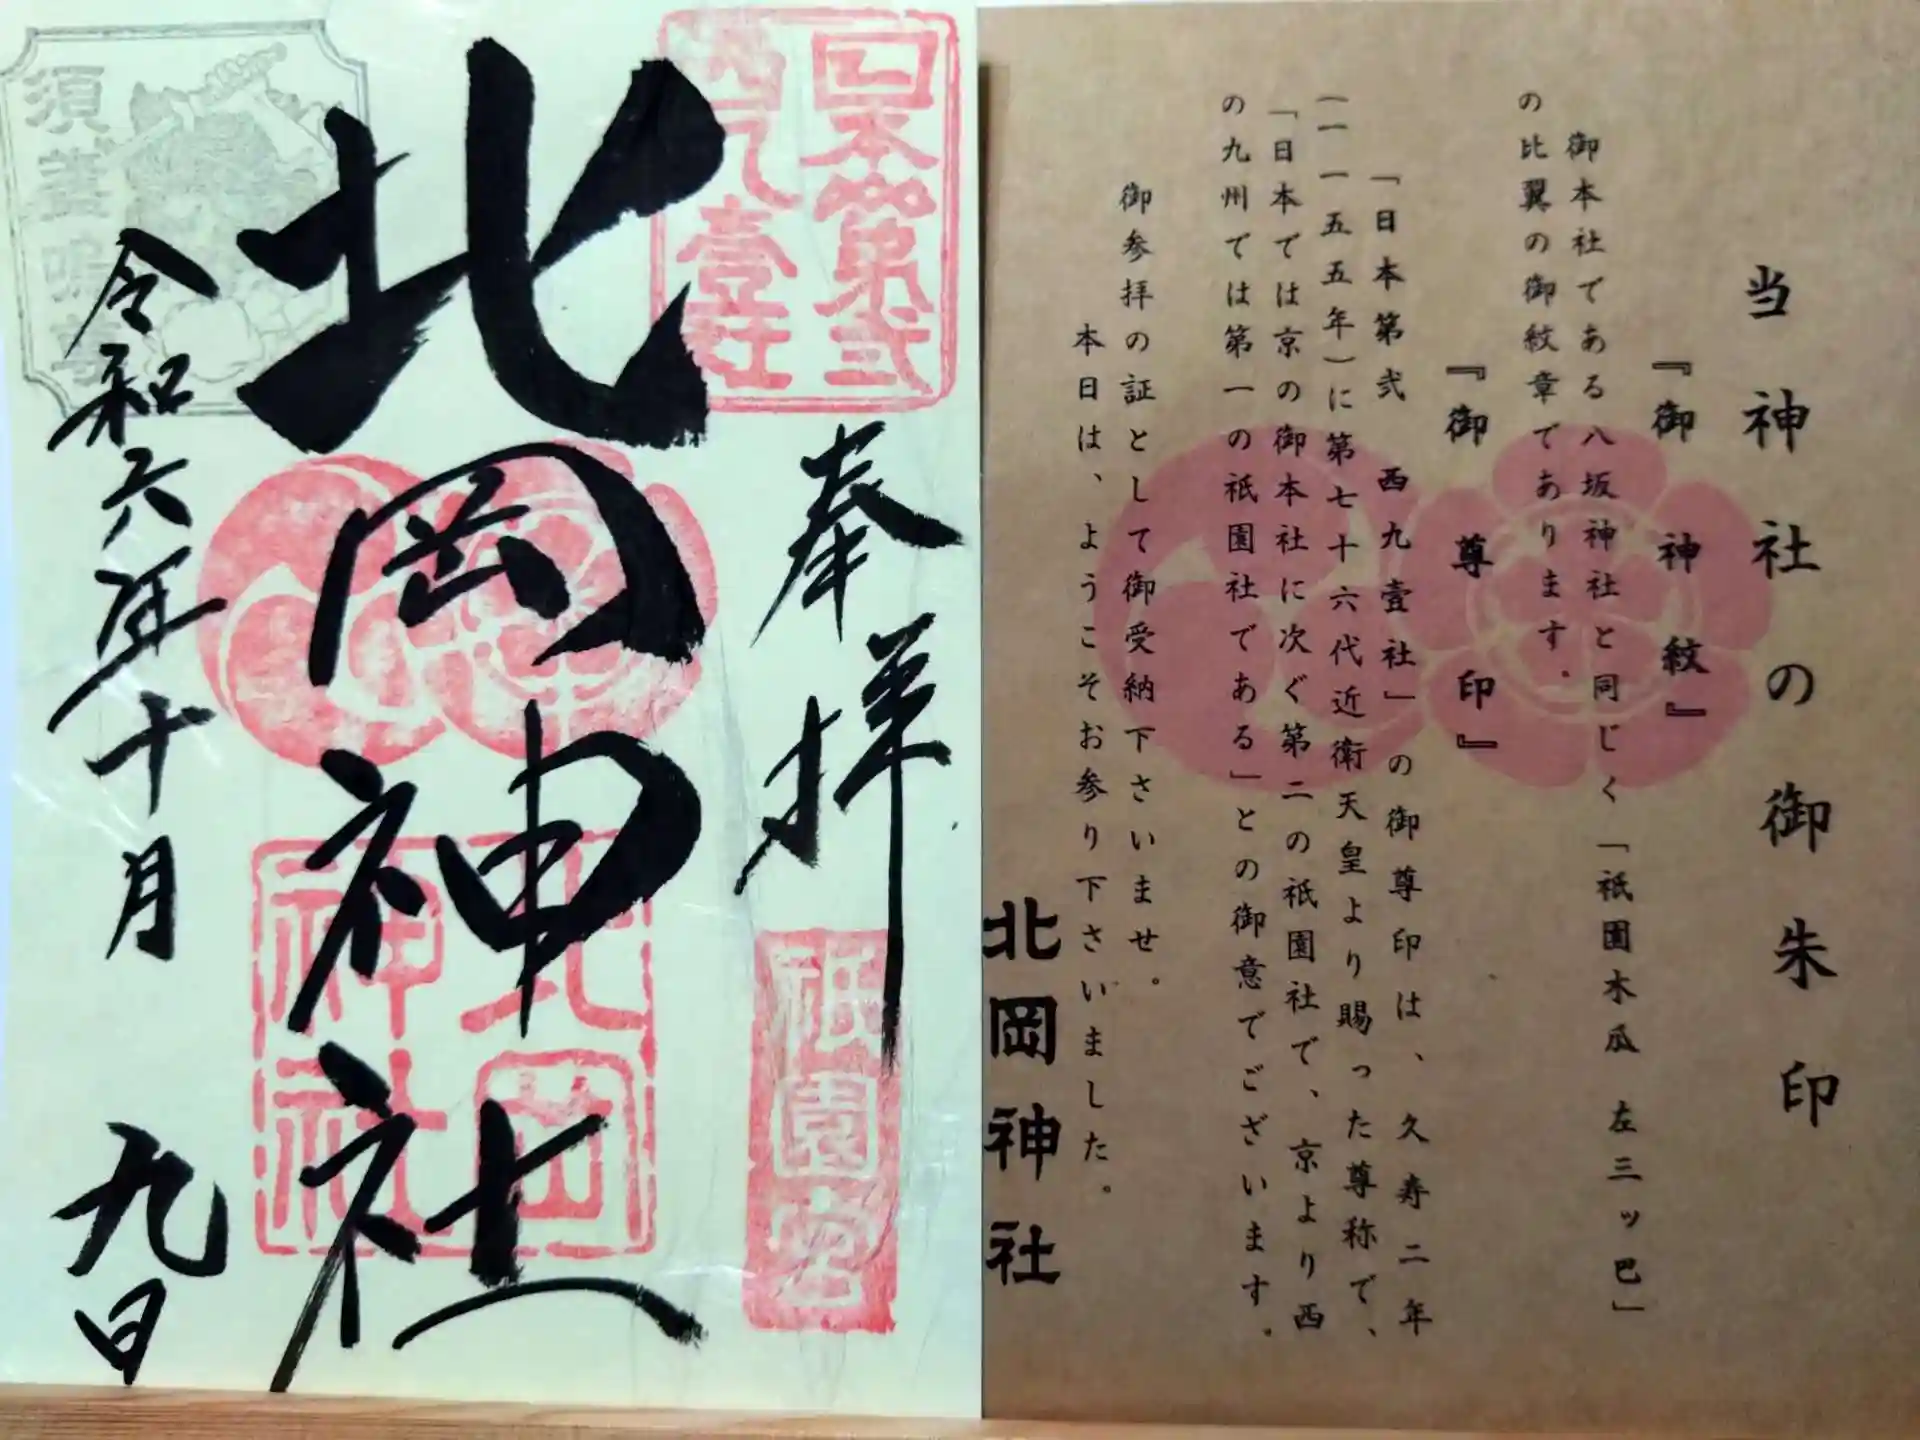 当神社の御朱印
『御神紋』
御本社である八坂神社と同じく「祇園木瓜 左三ッ巴」
の比翼の御紋章であります。
『御尊印』
「日本第弐 西九壹社」の御尊印は、久寿二年
(一一五五年)に第七十六代近衛天皇より賜った尊称で、
「日本では京の御本社に次ぐ第二の祇園社で、京より西
の九州では第一の祇園社である」との御意でございます。
御参拝の証として御受納下さいませ。
本日は、ようこそお参り下さいました。
北岡神社
日本第弐
西九壹社
奉拝
祇園宮
北岡神社
北岡
神社
須盞嗚尊
令和六年十月九日